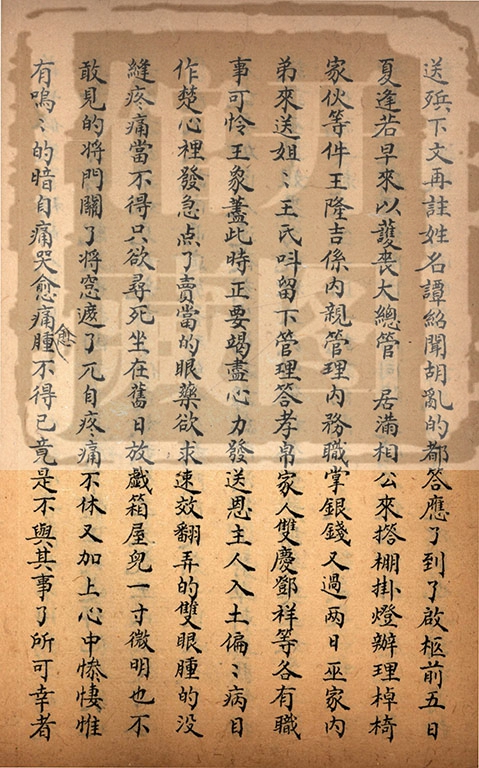 送殡下文再註姓名譚紹聞胡亂的都答應了到了啟柩前五日
夏逢若早來以護喪大總管 居滿相公來搭棚掛燈辦理棹椅
家伙等件王隆吉係內親管理內務職掌銀錢又過两日巫家內
弟來送姐〻王氏呌留下管理答孝帛家人雙慶鄧祥等各有職
事可怜王象藎此時正要竭盡心力發送恩主人入土偏〻病目
作楚心裡發急点了賣當的眼藥欲求速效翻弄的雙眼腫的没
縫疼痛當不得只欲尋死坐在舊日放戲箱屋兒一寸微明也不
敢見的將門關了將窓遮了兀自疼痛不休又加上心中惨悽惟
有嗚〻的暗自痛哭愈痛愈腫不得已竟是不與其事了所可幸者